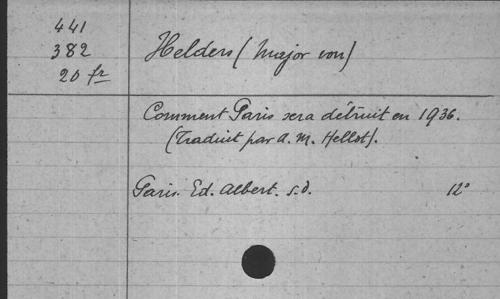 441
382
20 fr
Helders (Major von)
Comment Paris sera détruit en 1936.
(Traduit par A. M. Hellot).
Paris. Ed. Albert. s.d. 12°